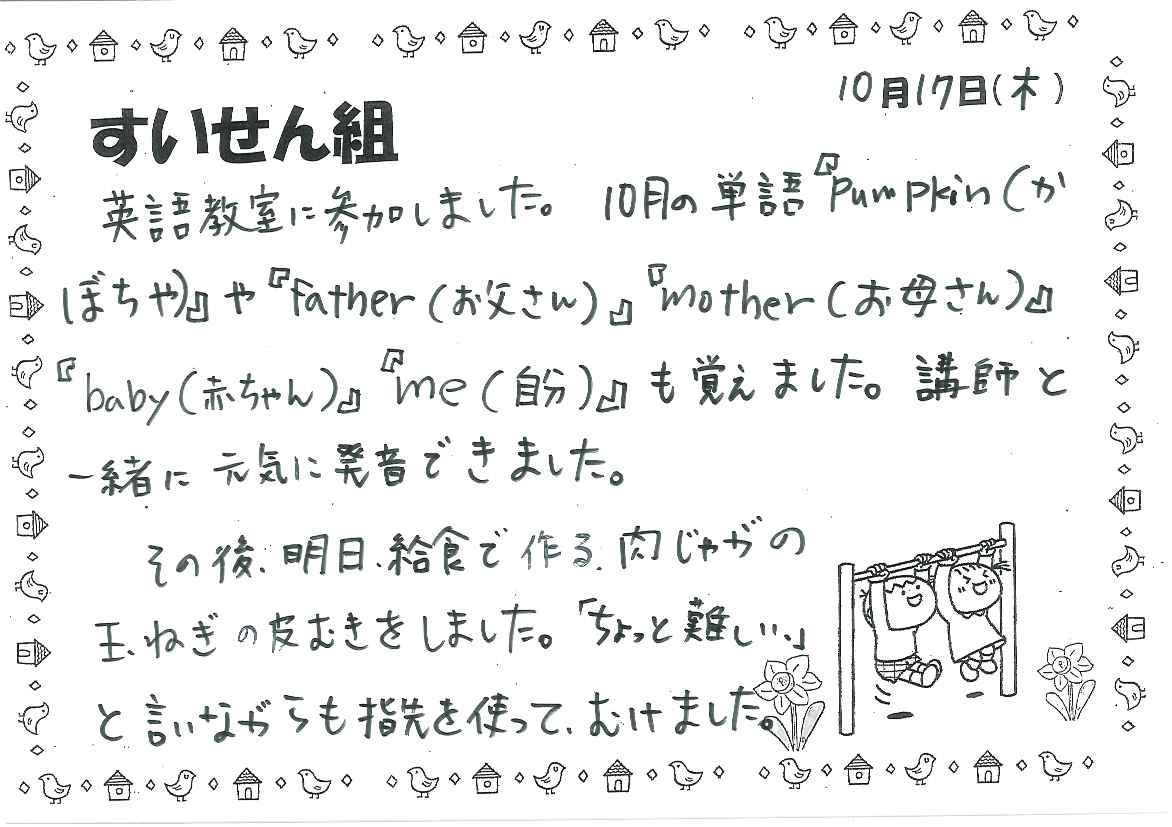 10月17日(木)
すいせん組
英語教室に参加しました。10月の単語『Pumpkin(か
ぼちゃ)』や『father(お父さん)』『mother(お母さん)』
『baby(赤ちゃん)』『me(自分)』も覚えました。講師と
一緒に元気に発音できました。
その後、明日、給食で作る、肉じゃがの
玉ねぎの皮むきをしました。「ちょっと難しい、」
と言いながらも指先を使って、むけました。